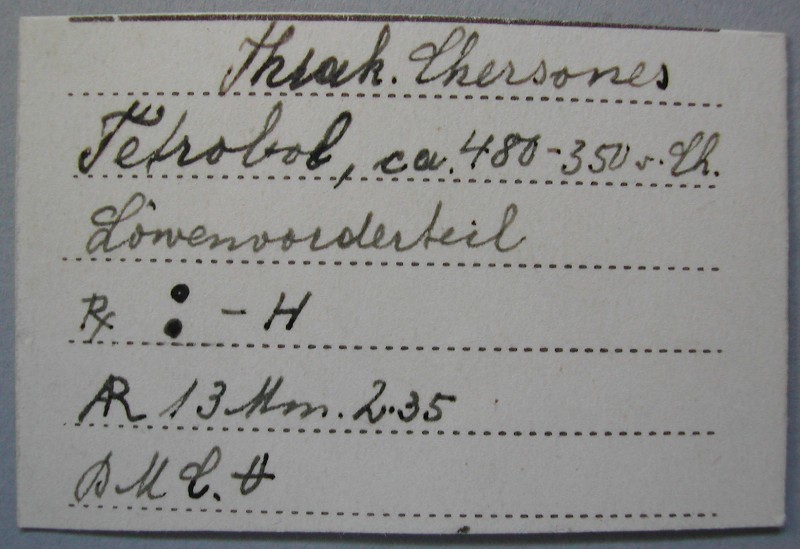 Thrak. Chersones
Tetrobol, ca. 480-350 v. Ch.
Löwenvorderteil
Rx : - H
AR 13 Mm. 2.35
BMC.